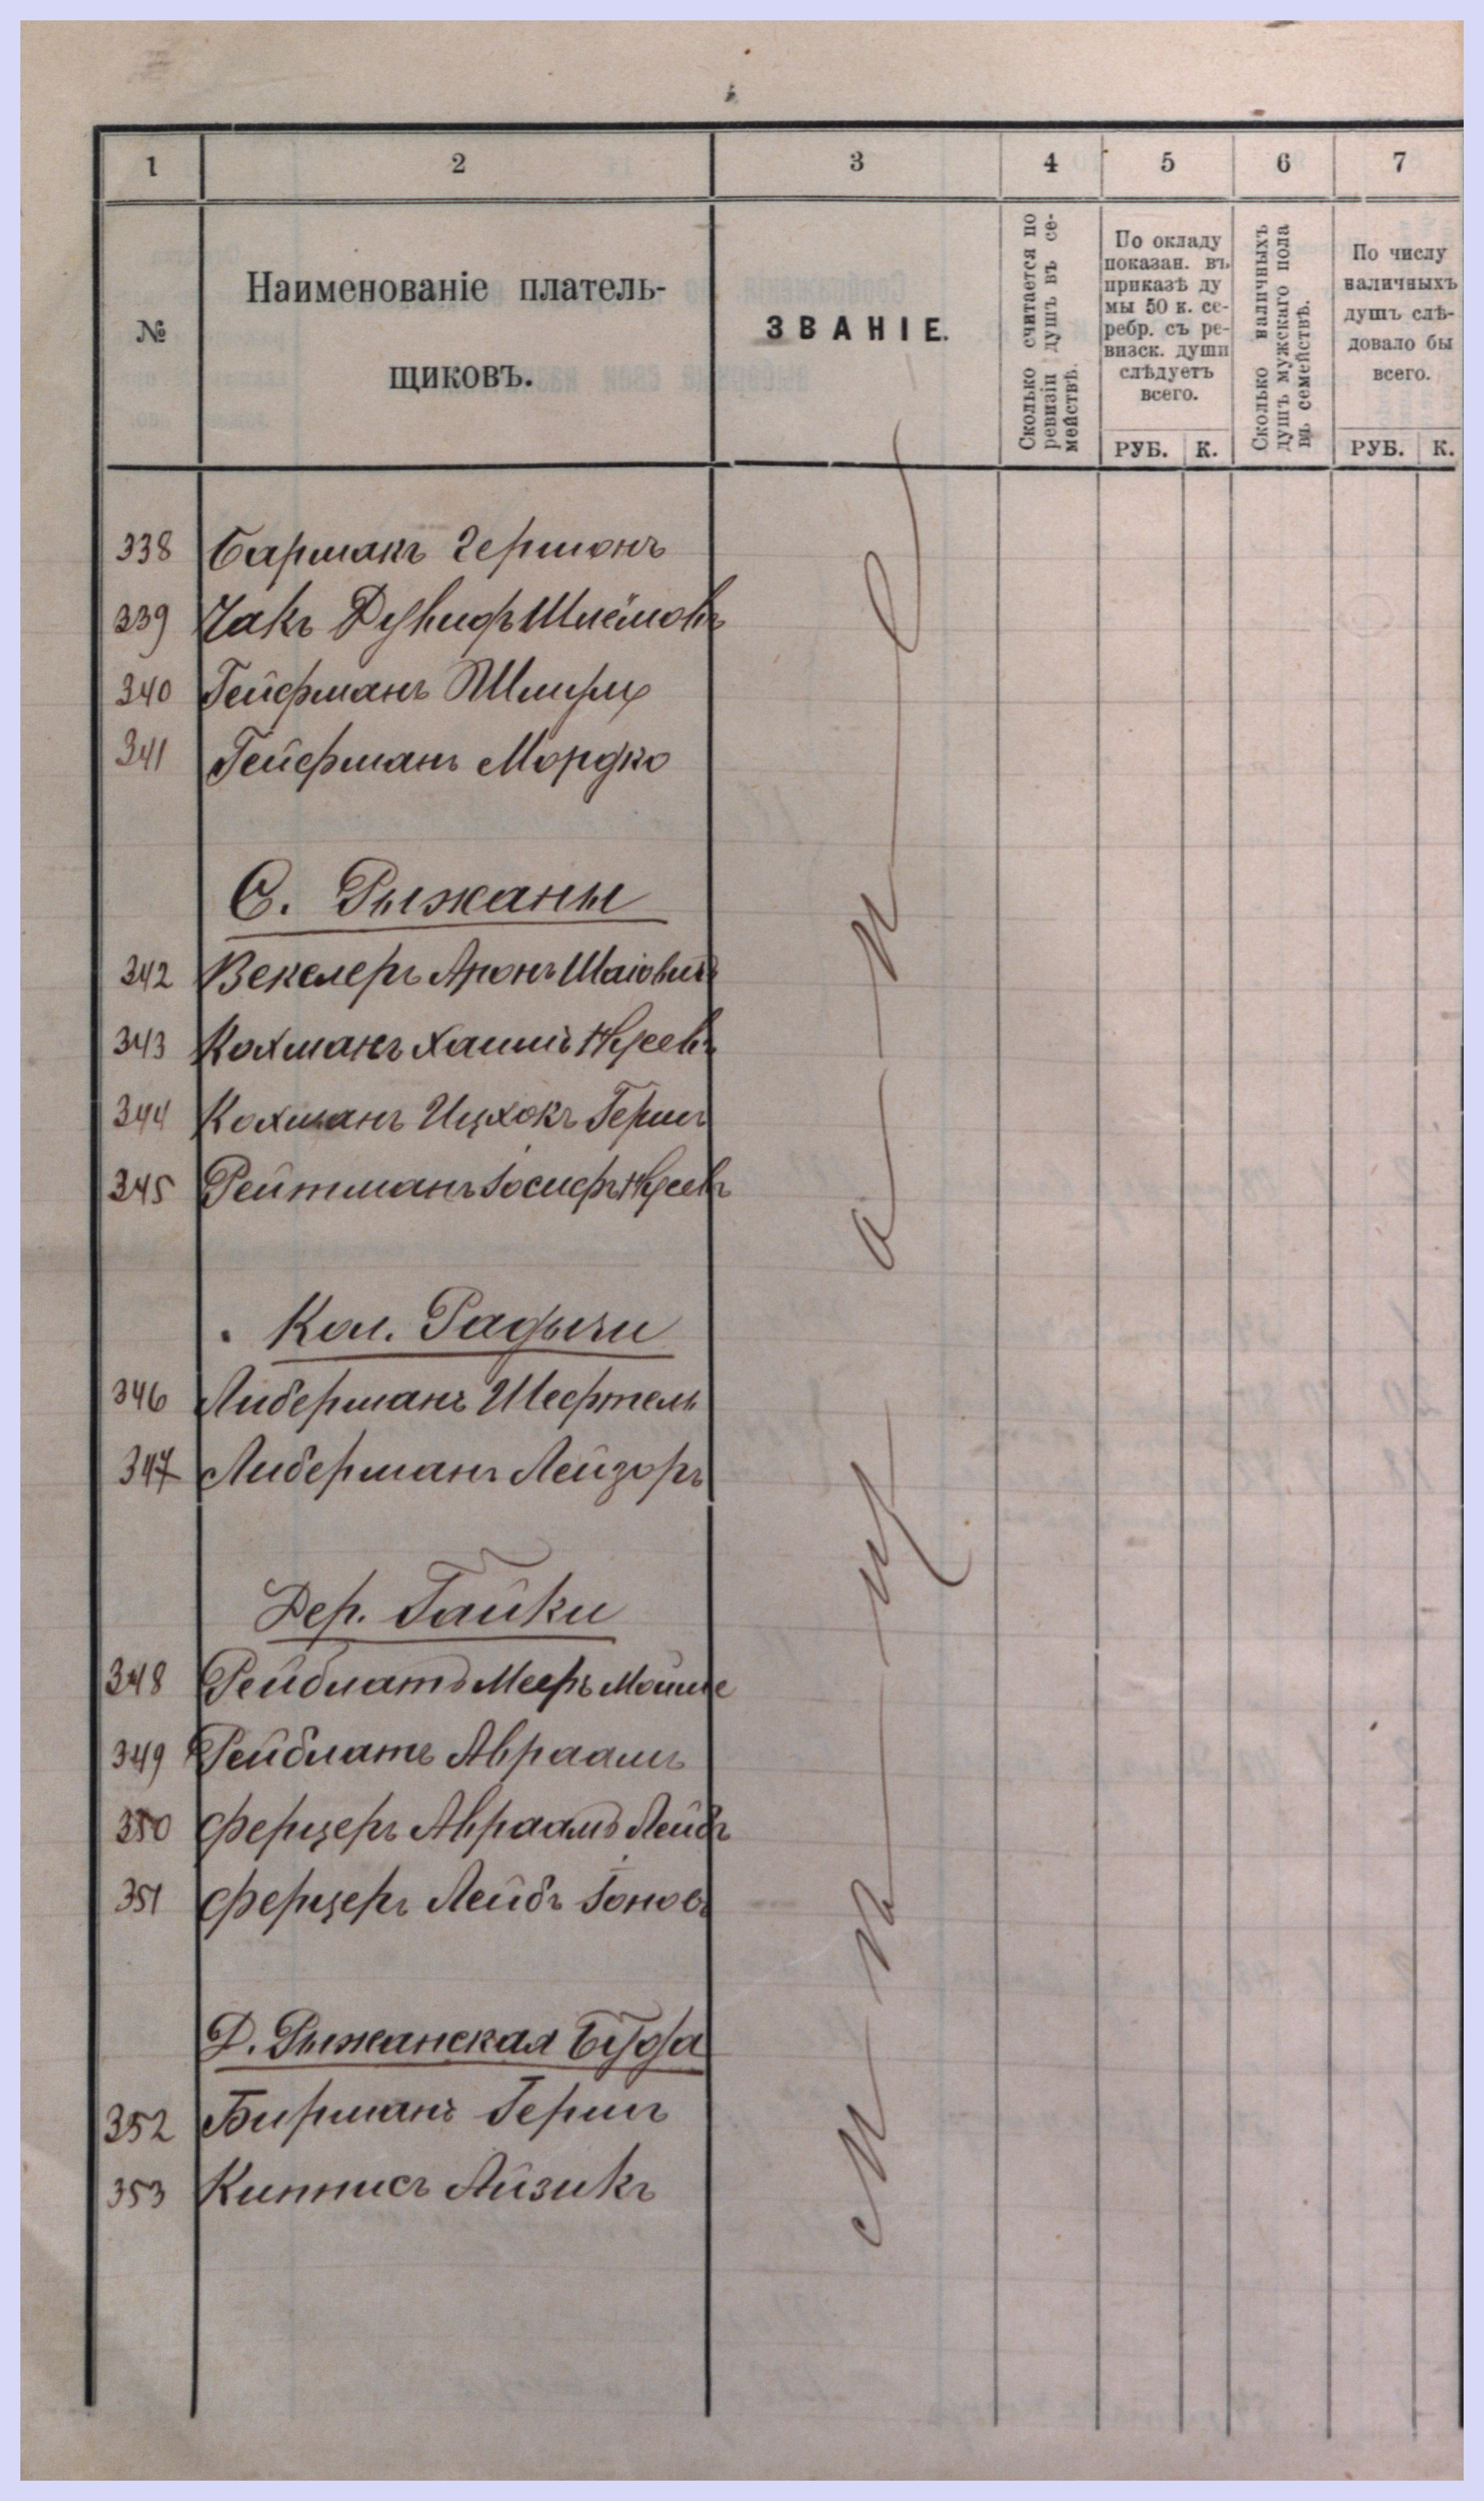 1 2 3 4 5 6 7
№
Наименованіе платель-
щиковъ.
ЗВАНІЕ.
Сколько считается по
ревизіи душъ въ се-
мействѣ.
По окладу
показан. въ
приказѣ ду
мы 50 к. се-
ребр. съ ре-
визск. души
слѣдуетъ
всего.
РУБ. К.
Сколько наличныхъ
душъ мужскаго пола
въ семействѣ.
По числу
наличныхъ
душъ слѣ-
довало бы
всего.
РУБ. К.
338 Бармакъ Гершонъ
339 Чакъ Шлёмовъ
340 Гейфманъ
341 Гейфманъ Мордко
С. Рыжаны
342 Векслеръ Аронъ Шаіовичъ
343 Кохманъ Хаимъ Нусевъ
344 Кохманъ Ицхокъ Гершъ
345 Рейтманъ Іосифъ Нусевъ
Кол. Гадычи
346 Либерманъ Шефтель
347 Либерманъ Лейзоръ
Дер. Гайки
348 Рейблатъ Мееръ Мошке
349 Рейблатъ Авраамъ
350 Ферцеръ Авраамъ Лейбъ
351 Ферцеръ Лейбъ Іоновъ
Д. Рыжанская Буда
352 Бирманъ Гершъ
353 Кипписъ Айзикъ